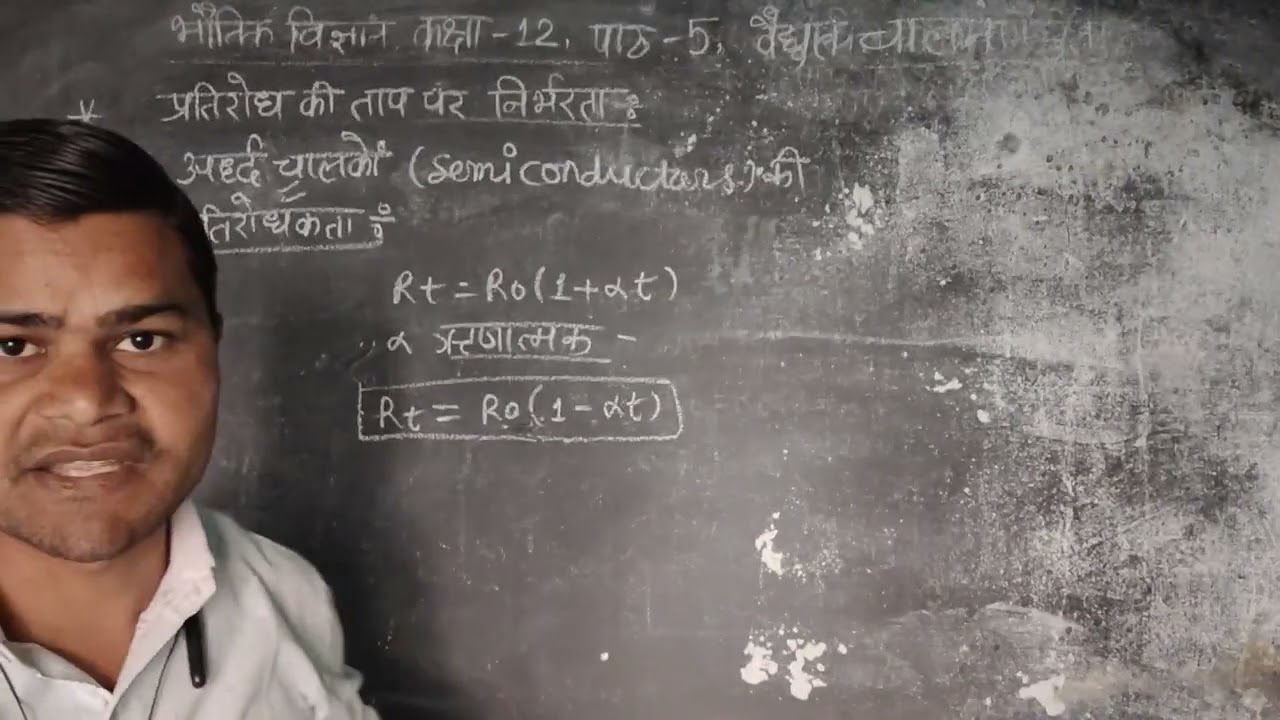 भौतिक विज्ञान, कक्षा -12, पाठ -5, वैद्युत चालन
* प्रतिरोध की ताप पर निर्भरता :
अर्द्ध चालकों (semiconductors) की
तिरोधकता :
Rt = Ro(1+αt)
∴ α ऋणात्मक -
Rt = Ro(1-αt)